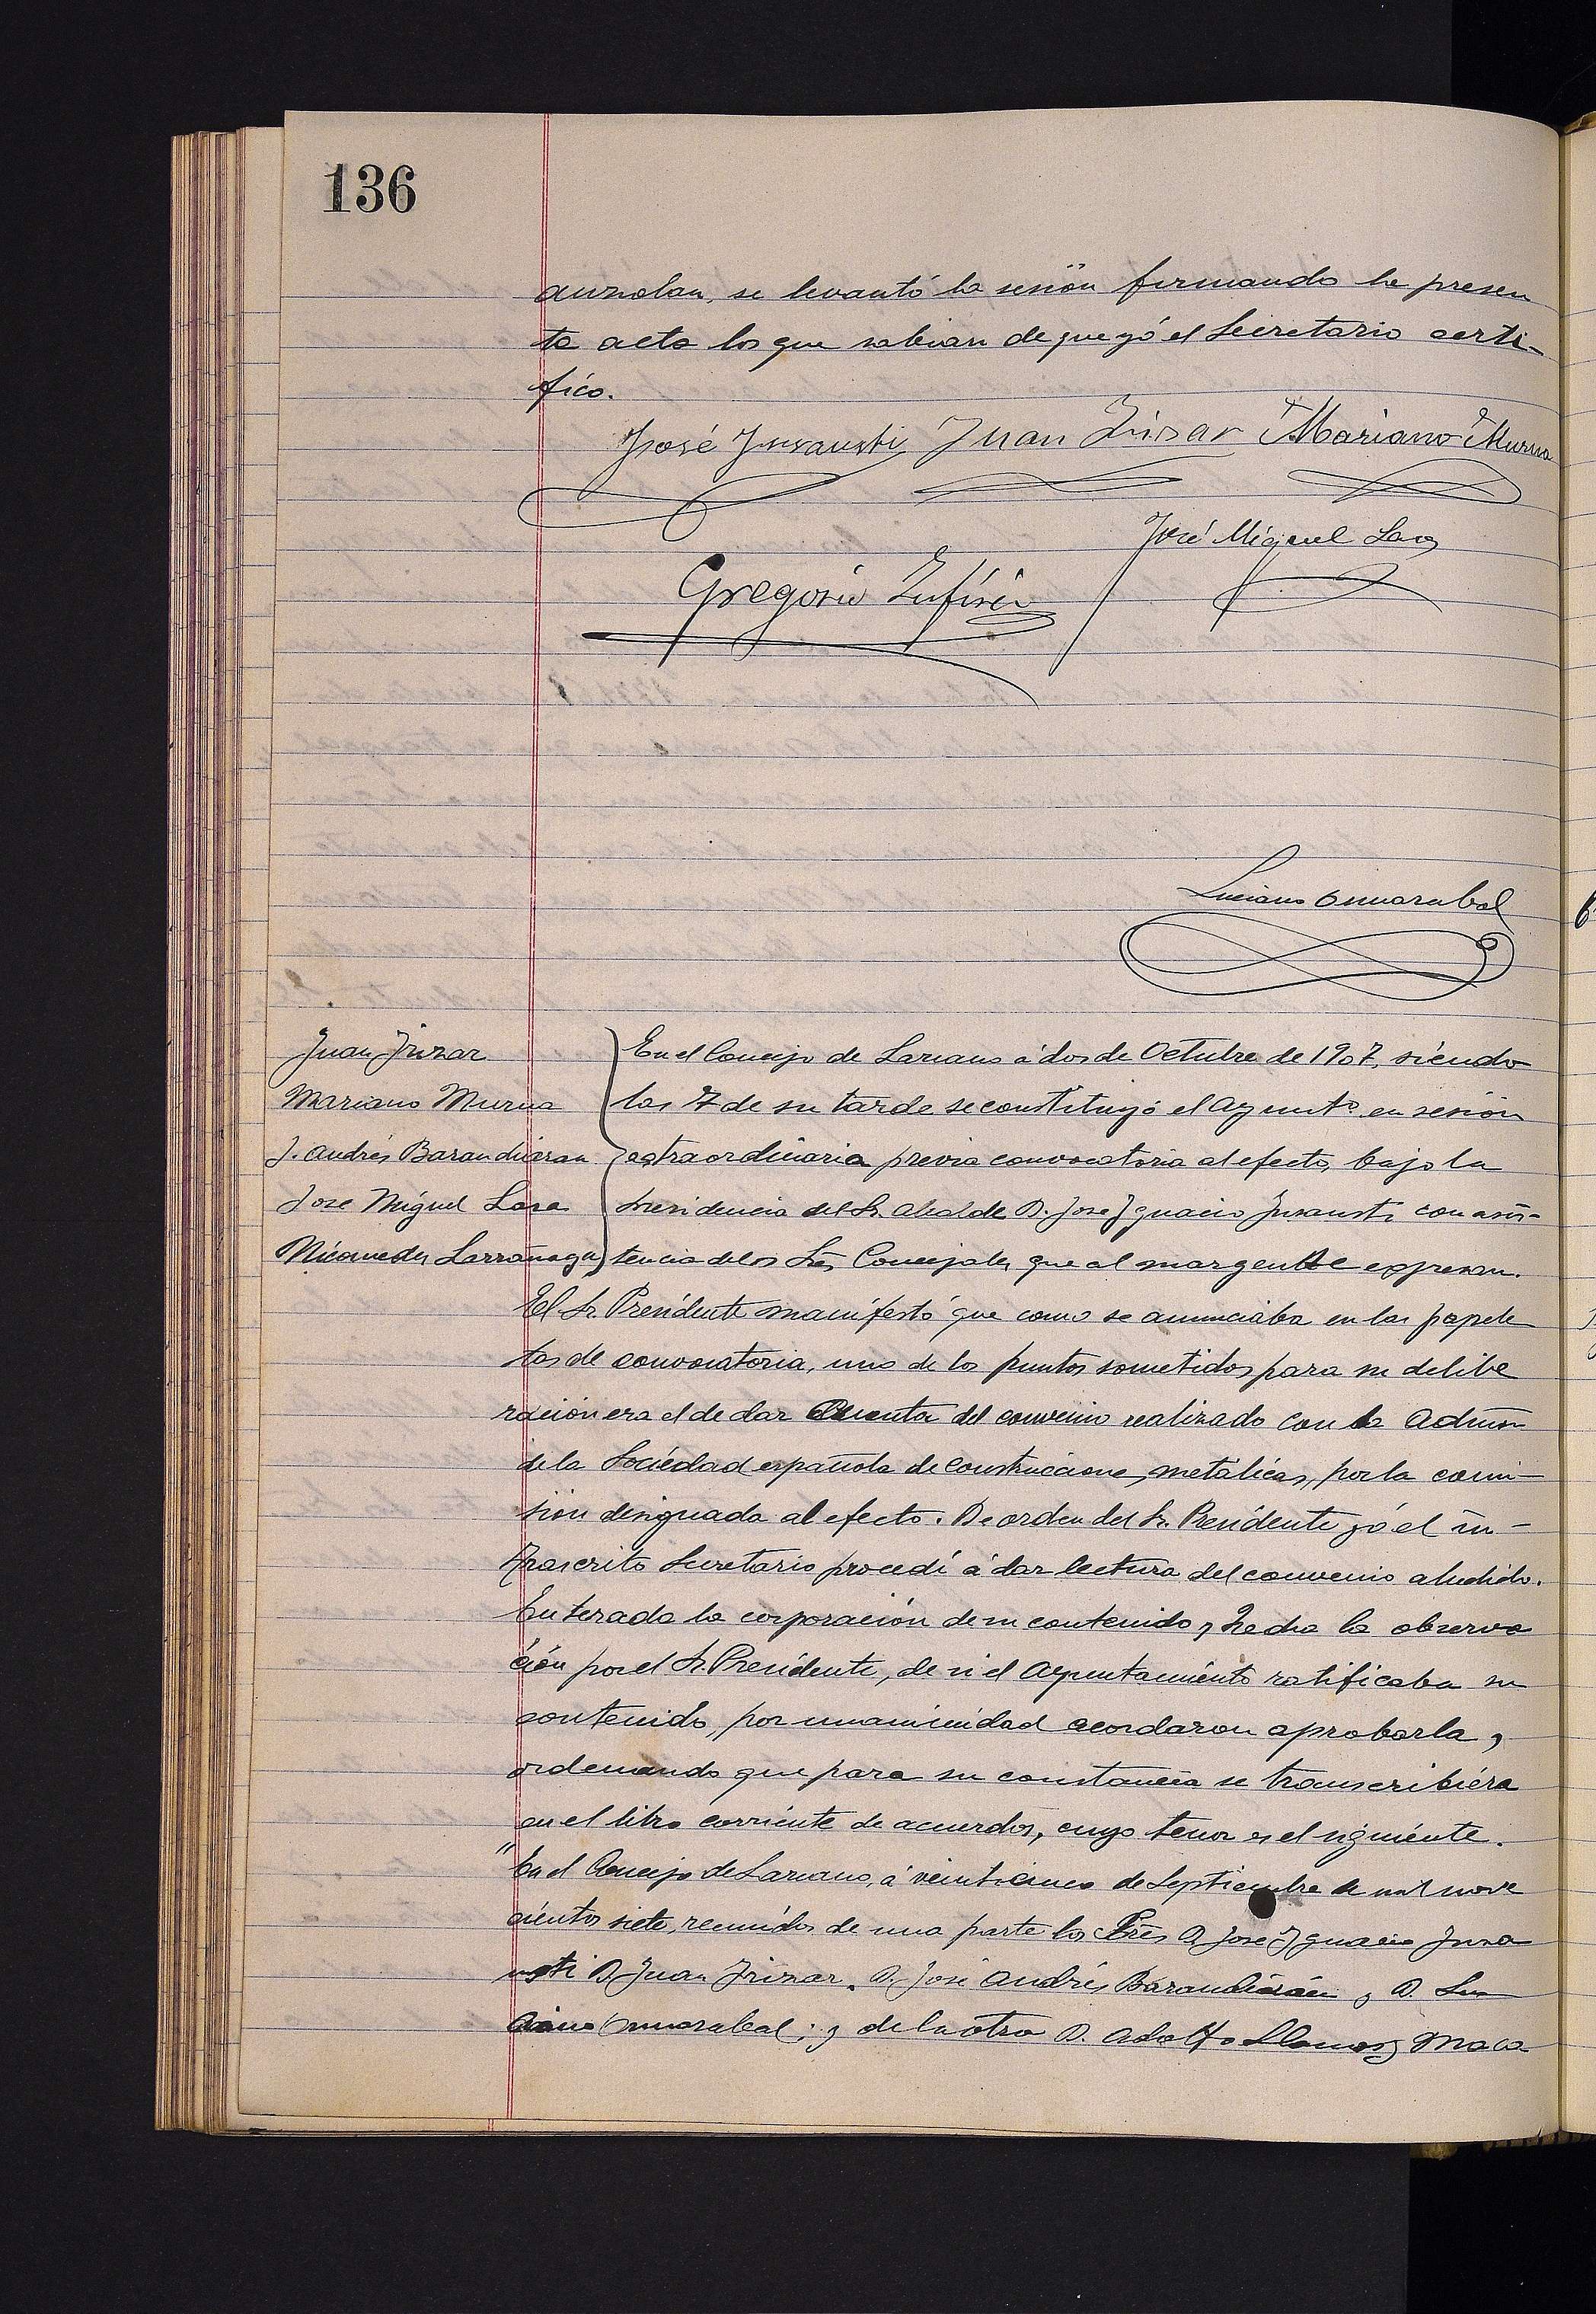 136
se levantó la sesión firmando la presen
te acta los que sabian de que yó el Secretario certi-
fico.
José Insausti Juan Irizar Mariano Murua
José Miguel Lasa
Gregorio
Luciano
Juan Irizar
Mariano Murua
J. Andrés Barandiaran
Jose Miguel Lasa
Nicomedes Larrañaga
En el Concejo de Lazcano á dos de Octubre de 1907, siendo
las 7 de su tarde se constituyó el Ayuntº en sesión
extraordinaria previa convocatoria al efecto, bajo la
Presidencia del Sr. Alcalde D. Jose Ignacio Insausti con asis-
tencia de los Sres Concejales que al margen se expresan.
El Sr. Presidente manifestó que como se anunciaba en las papele
tas de convocatoria, uno de los puntos sometidos para su delibe
ración era el de dar Cuenta del convenio realizado con la Admon
de la Sociedad española de construcciones metálicas, por la comi-
sión designada al efecto. De orden del Sr. Presidente yó el in-
frascrito Secretario procedí á dar lectura del convenio aludido.
Enterada la corporación de su contenido, y hecha la observa
ción por el Sr. Presidente, de si el Ayuntamiento ratificaba su
contenido, por unanimidad acordaron aprobarla, y
ordenando que para su constancia se transcribiera
en el libro corriente de acuerdos, cuyo tenor es el siguiente.
"En el Concejo de Lazcano, á veinticinco de Septiembre de mil nove
cientos siete, reunidos de una parte los Sres D. Jose Ignacio Insa
usti D. Juan Irizar, D. José Andrés Barandiarán y D. Lu
ciano; y de la otra D. Adolfo Llamas y Maca